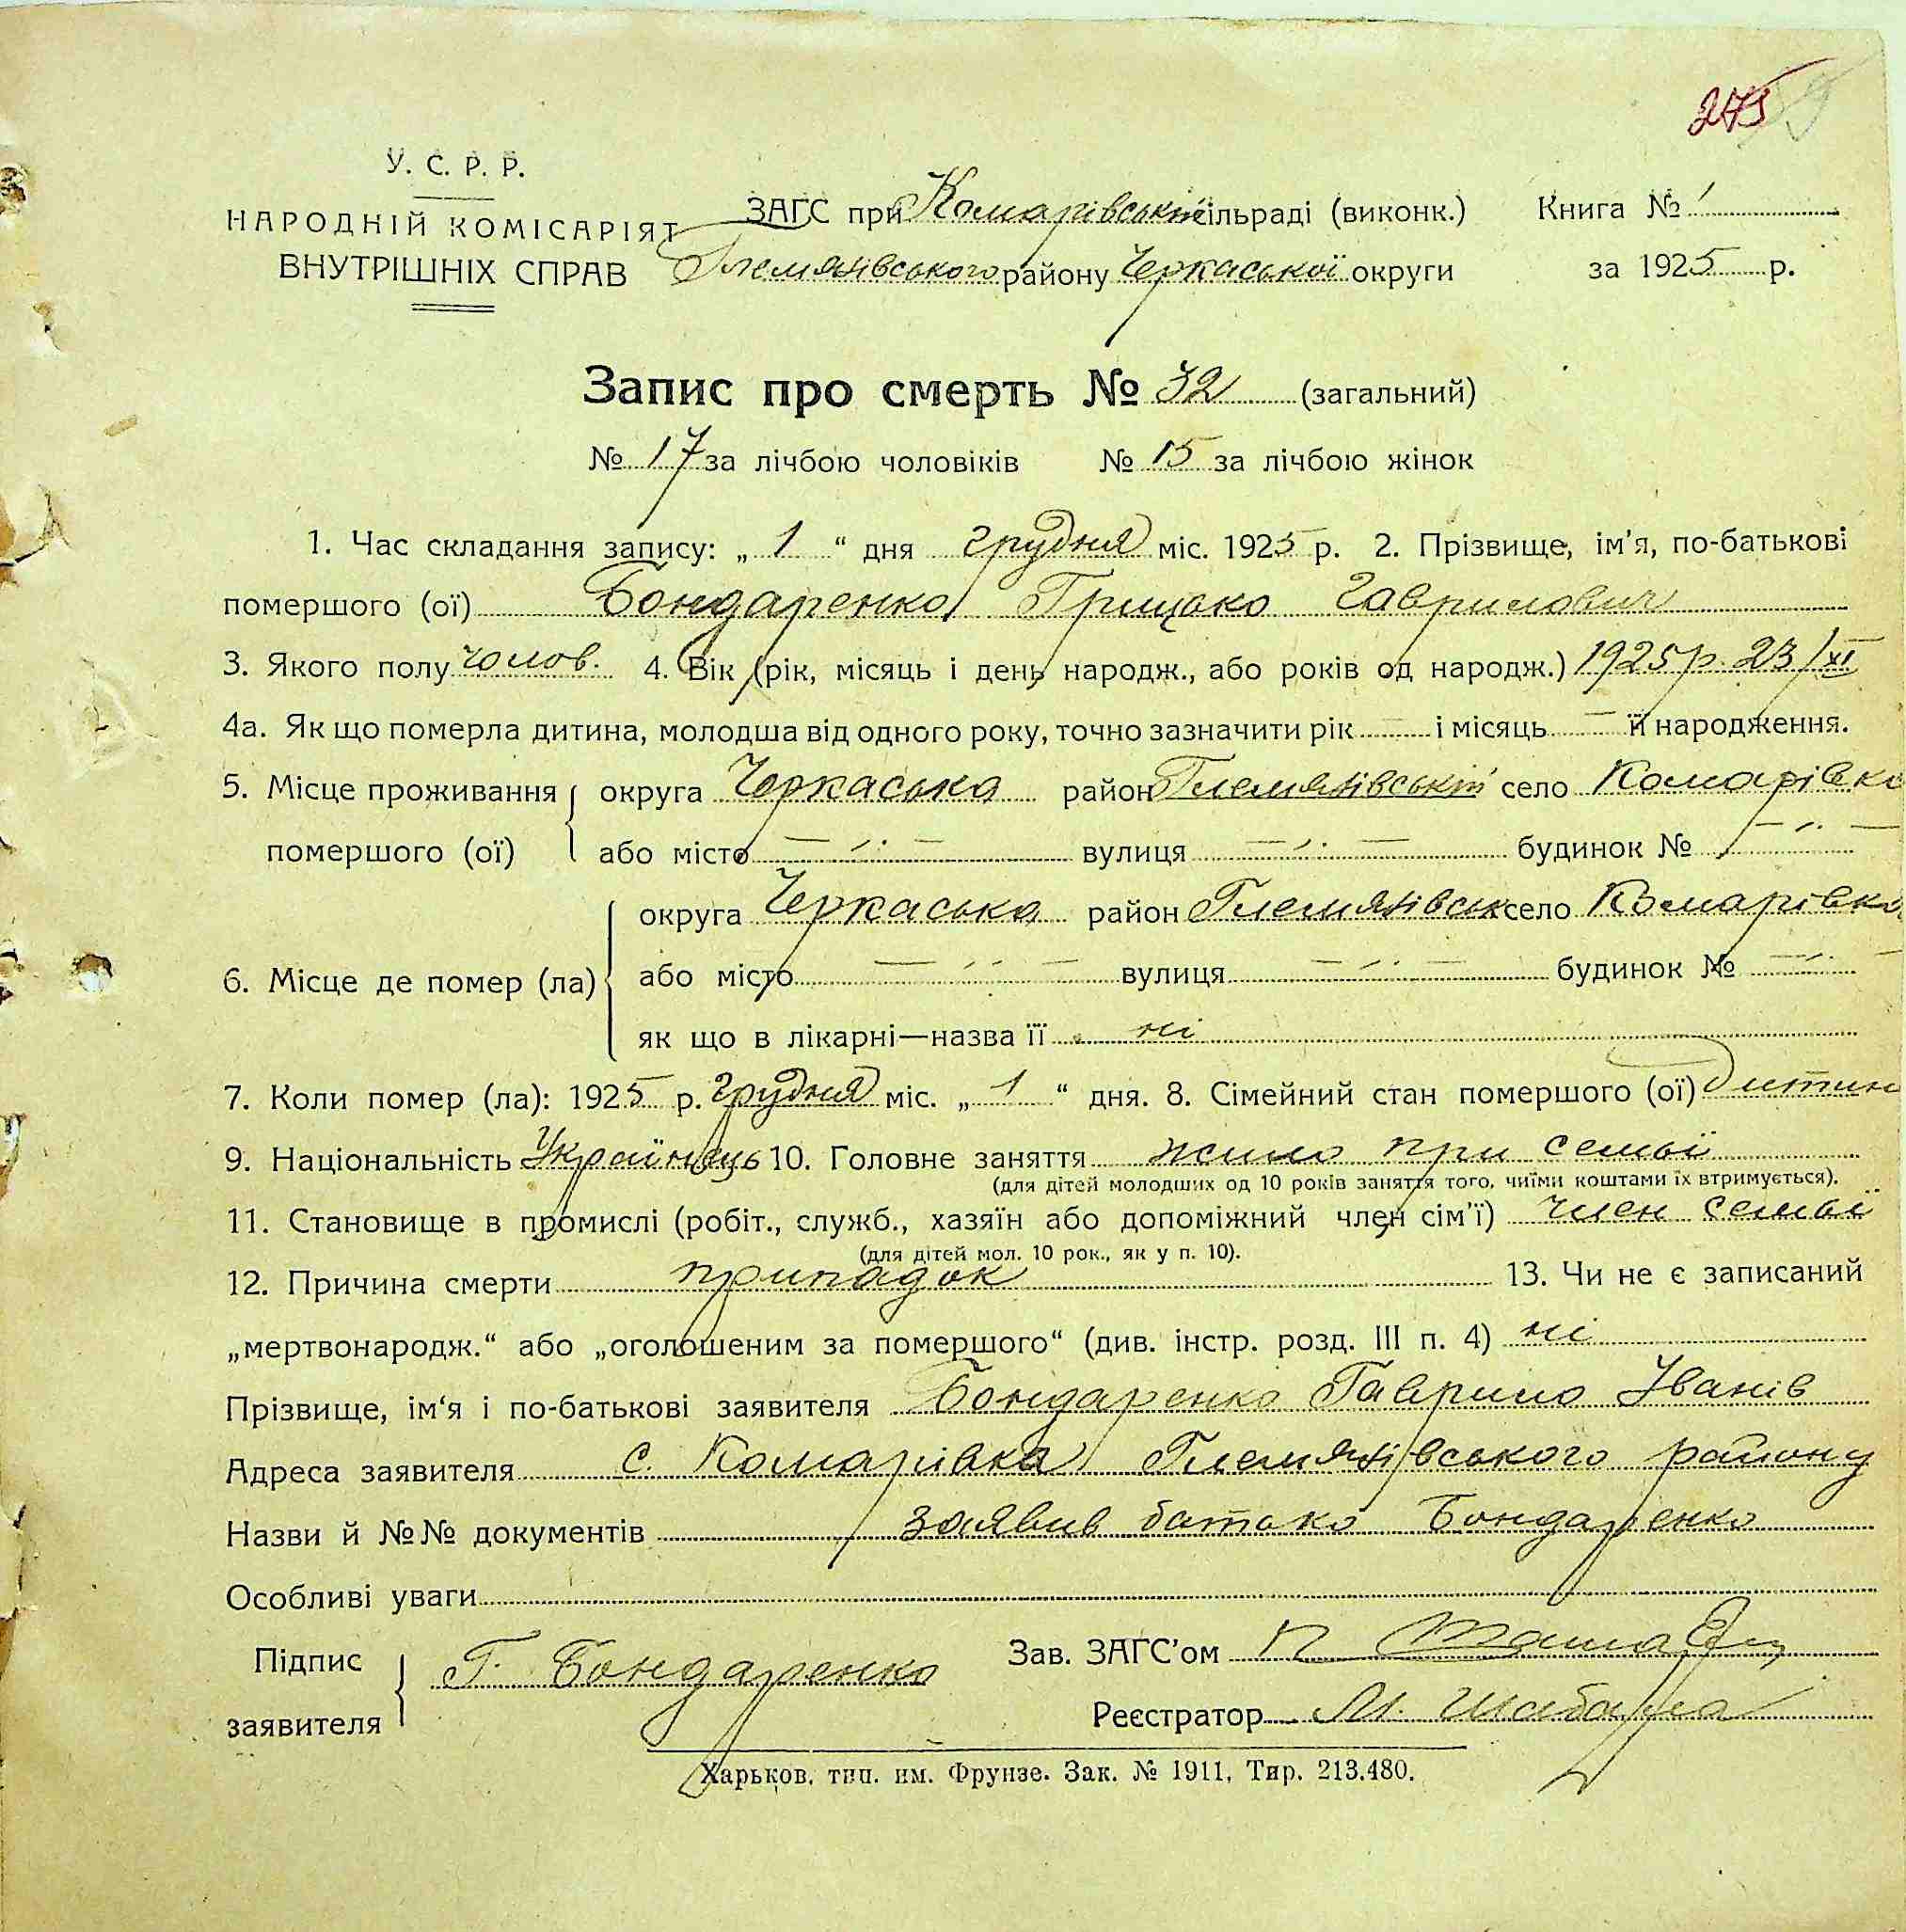 275
У. С. Р. Р.
НАРОДНІЙ КОМІСАРІЯТ
ВНУТРІШНІХ СПРАВ
ЗАГС при Комарівській сільраді (виконк.)
Гельмязівського району Черкаської округи
Книга № 1
за 1925 р.
Запис про смерть № 32 (загальний)
№ 17 за лічбою чоловіків № 15 за лічбою жінок
1. Час складання запису: „ 1 “ дня грудня міс. 1925 р. 2. Прізвище, ім’я, по-батькові
помершого (ої) Бондаренко Грицько Гаврилович
3. Якого полу чолов. 4. Вік (рік, місяць і день народж., або років од народж.) 1925 р. 23/XI
4а. Як що померла дитина, молодша від одного року, точно зазначити рік — і місяць — її народження.
5. Місце проживання помершого (ої) округа Черкаська район Гельмязівський село Комарівка
або місто — " — вулиця — " — будинок № — " —
6. Місце де помер (ла) округа Черкаська район Гельмязівськ село Комарівка
або місто — " — вулиця — " — будинок № — " —
як що в лікарні—назва її ні
7. Коли помер (ла): 1925 р. грудня міс. „ 1 “ дня. 8. Сімейний стан помершого (ої) дитин
9. Національність Українець 10. Головне заняття жило при семьї
(для дітей молодших од 10 років заняття того, чиїми коштами їх втримується).
11. Становище в промислі (робіт., служб., хазяїн або допоміжний член сім’ї) член семьї
(для дітей мол. 10 рок., як у п. 10).
12. Причина смерти припадок 13. Чи не є записаний
„мертвонародж.“ або „оголошеним за помершого“ (див. інстр. розд. III п. 4) ні
Прізвище, ім‘я і по-батькові заявителя Бондаренко Гаврило Іванів
Адреса заявителя с. Комарівка Гельмязівського району
Назви й №№ документів заявив батько Бондаренко
Особливі уваги
Підпис заявителя Г. Бондаренко
Зав. ЗАГС’ом
Реєстратор М. Шабарга
Харьков, тип. им. Фрунзе. Зак. № 1911, Тир. 213.480.